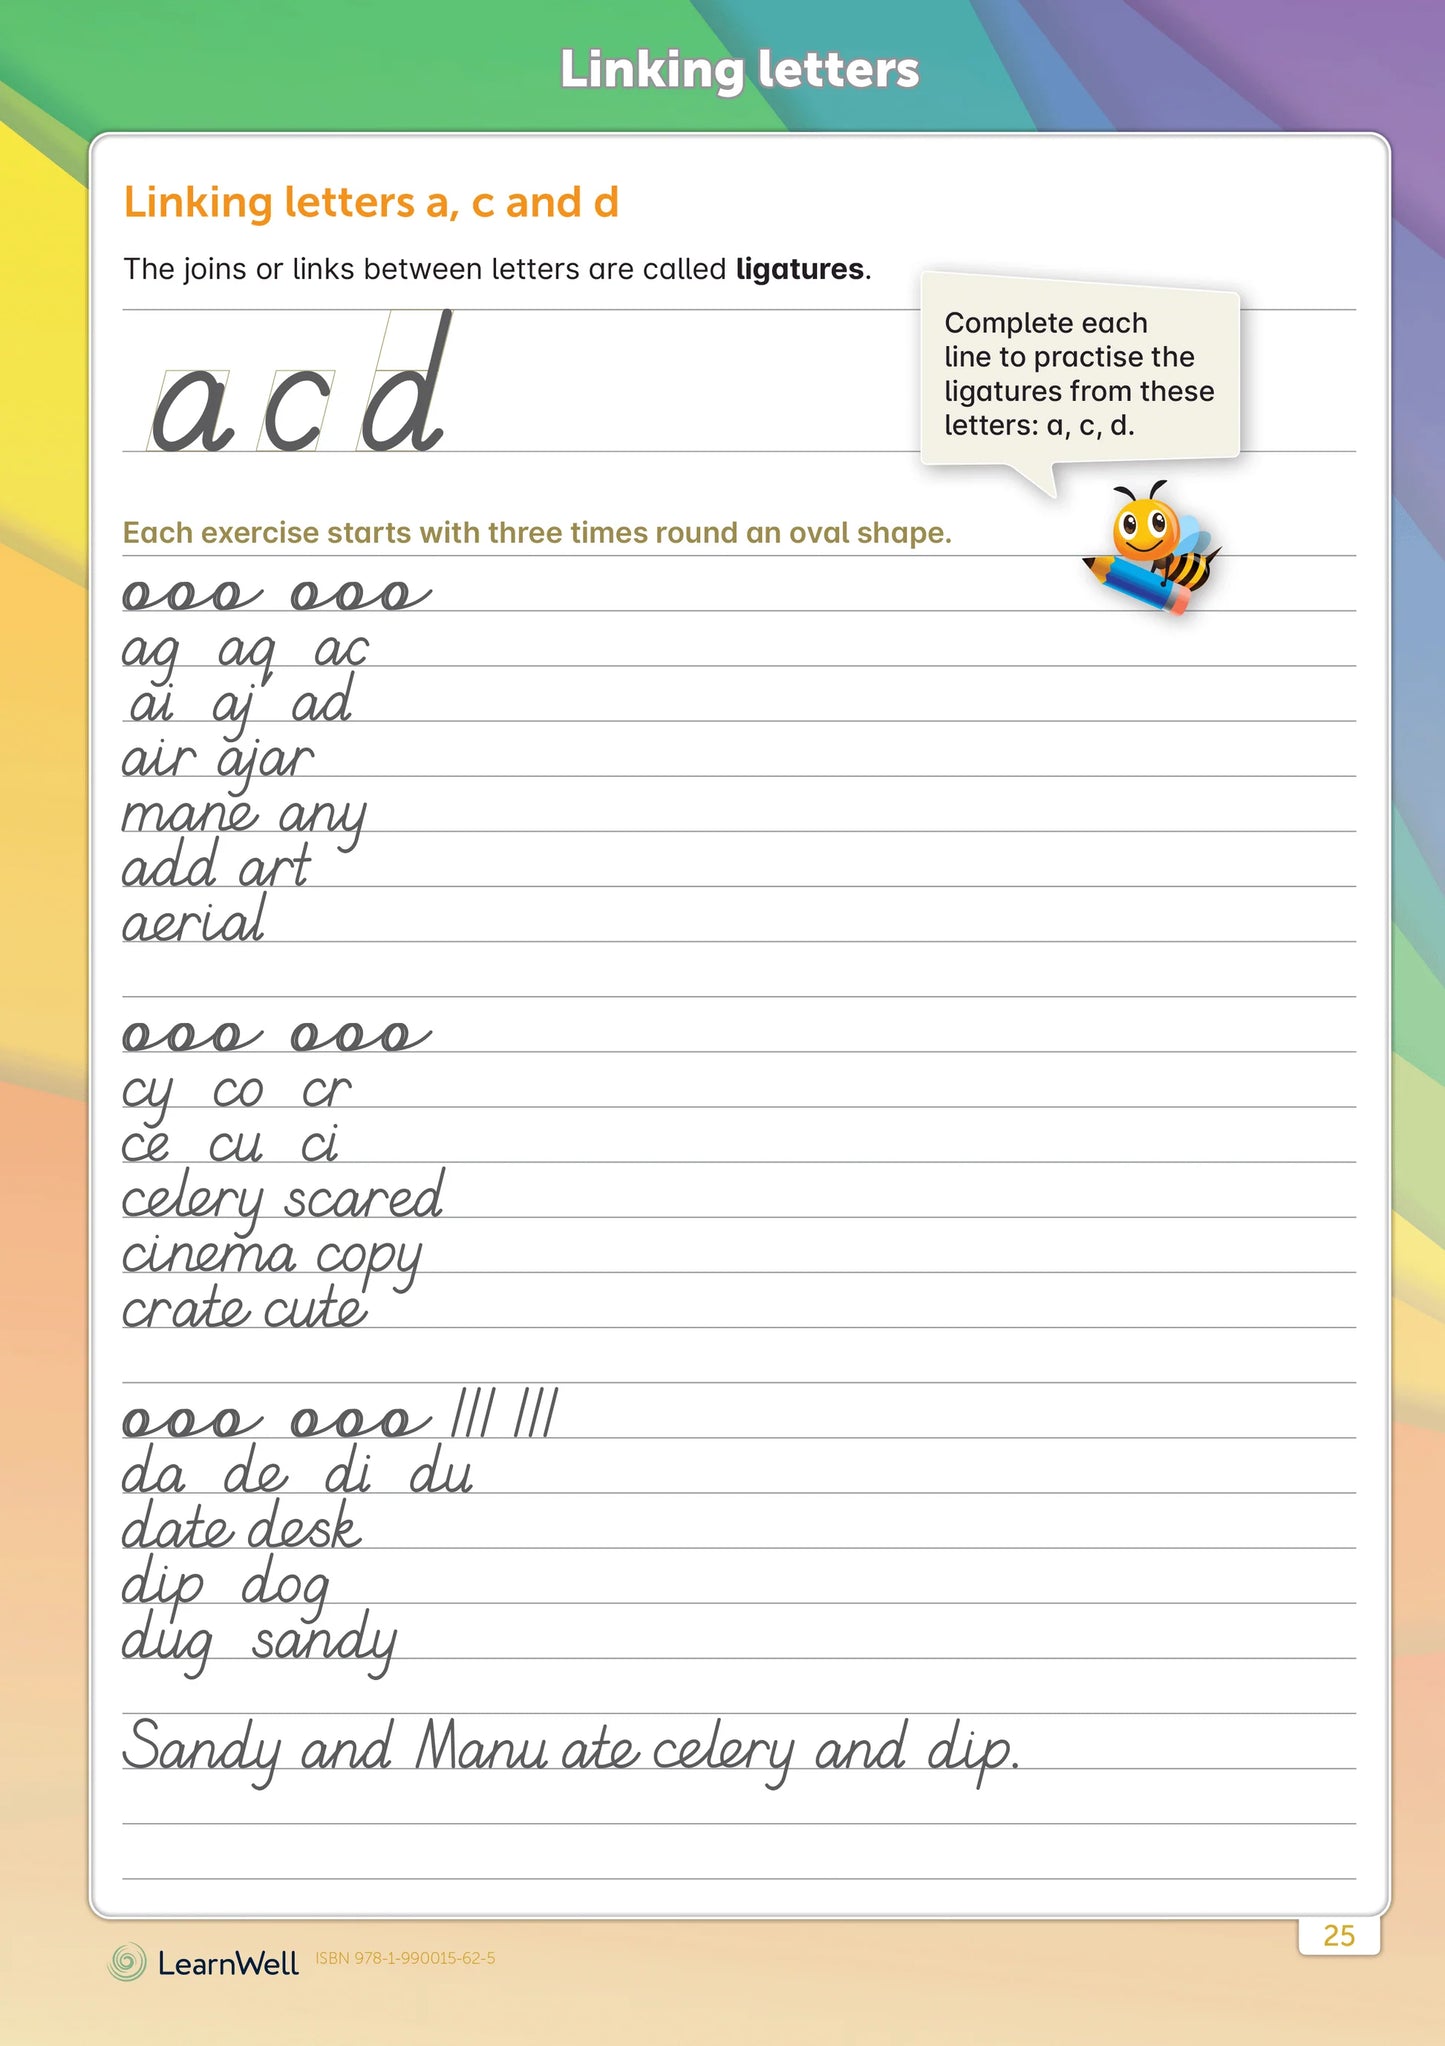 Linking letters
Linking letters a, c and d
The joins or links between letters are called ligatures.
a c d
Complete each
line to practise the
ligatures from these
letters: a, c, d.
Each exercise starts with three times round an oval shape.
ooo ooo
ag aq ac
ai aj ad
air ajar
mane any
add art
aerial
ooo ooo
cy co cr
ce cu ci
celery scared
cinema copy
crate cute
ooo ooo /// ///
da de di du
date desk
dip dog
dug sandy
Sandy and Manu ate celery and dip.
25
LearnWell ISBN 978-1-990015-62-5